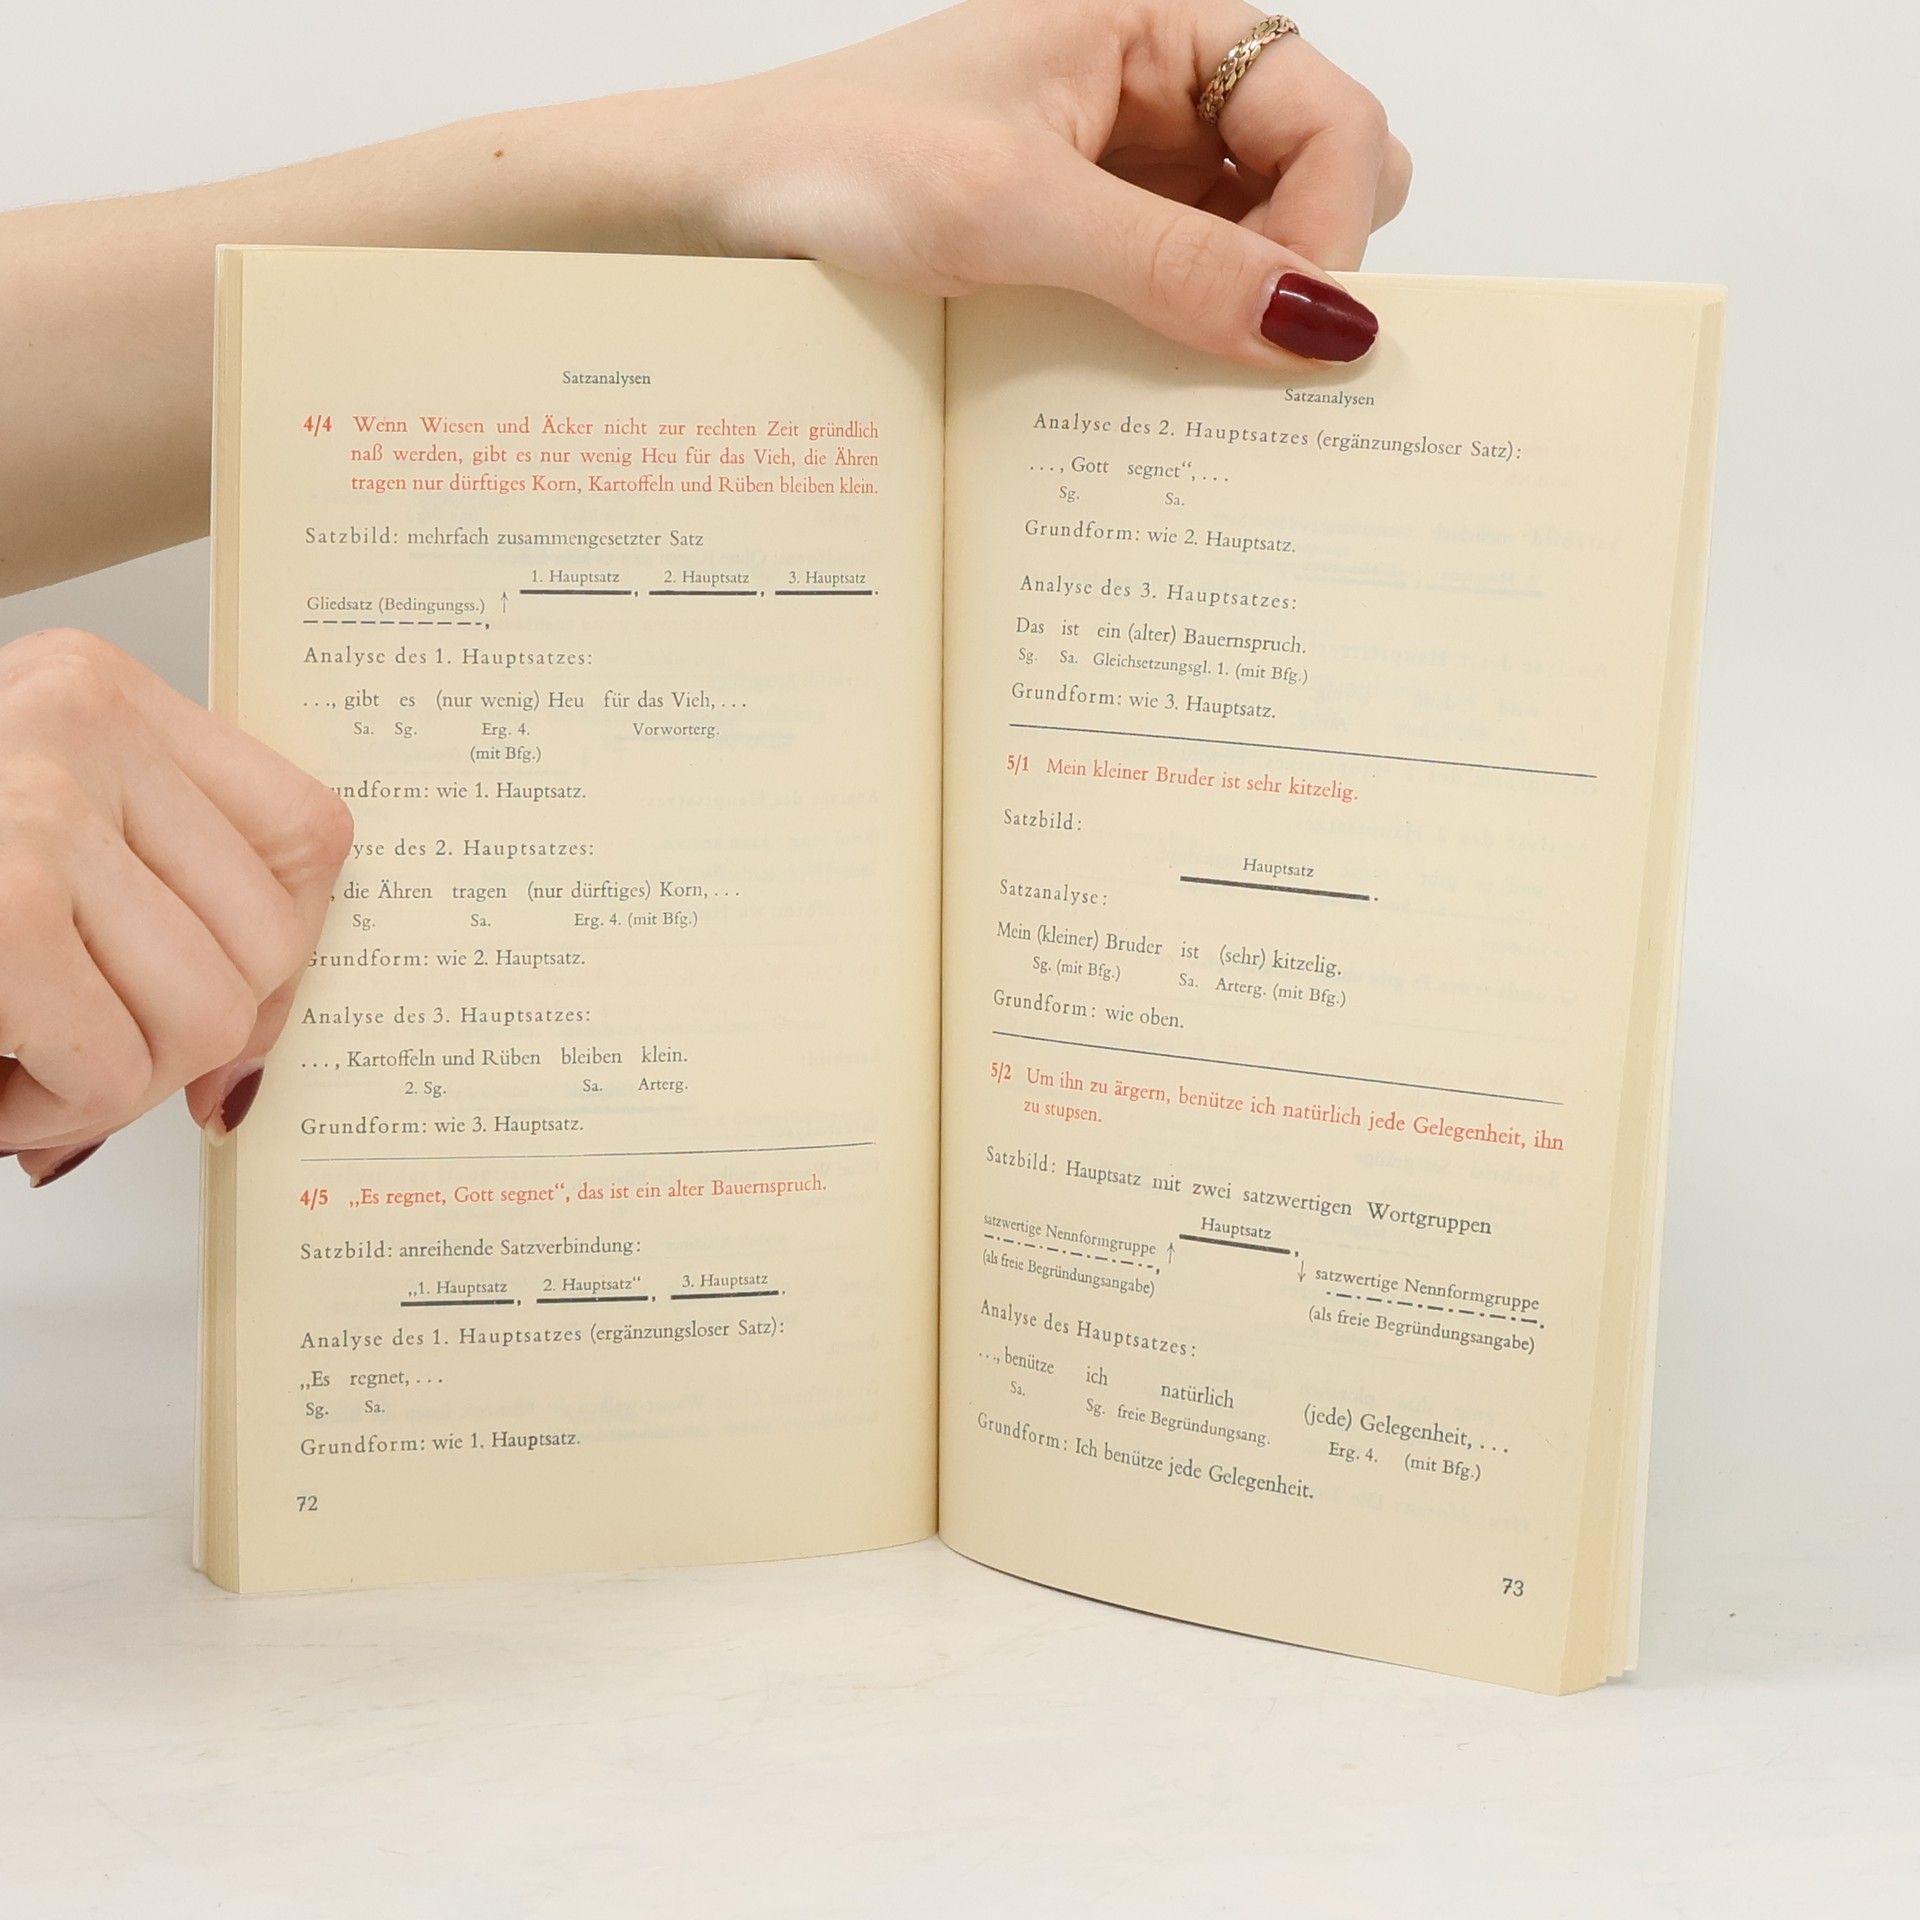 Satzanalysen
4/4 Wenn Wiesen und Äcker nicht zur rechten Zeit gründlich
naß werden, gibt es nur wenig Heu für das Vieh, die Ähren
tragen nur dürftiges Korn, Kartoffeln und Rüben bleiben klein.
Satzbild: mehrfach zusammengesetzter Satz
1. Hauptsatz, 2. Hauptsatz, 3. Hauptsatz.
Gliedsatz (Bedingungss.) ↑
,
Analyse des 1. Hauptsatzes:
..., gibt es (nur wenig) Heu für das Vieh, ...
Sa. Sg. Erg. 4. Vorworterg.
(mit Bfg.)
undform: wie 1. Hauptsatz.
yse des 2. Hauptsatzes:
, die Ähren tragen (nur dürftiges) Korn, ...
Sg. Sa. Erg. 4. (mit Bfg.)
Grundform: wie 2. Hauptsatz.
Analyse des 3. Hauptsatzes:
..., Kartoffeln und Rüben bleiben klein.
2. Sg. Sa. Arterg.
Grundform: wie 3. Hauptsatz.
4/5 „Es regnet, Gott segnet“, das ist ein alter Bauernspruch.
Satzbild: anreihende Satzverbindung:
„1. Hauptsatz, 2. Hauptsatz“, 3. Hauptsatz.
Analyse des 1. Hauptsatzes (ergänzungsloser Satz):
„Es regnet, ...
Sg. Sa.
Grundform: wie 1. Hauptsatz.
72
Satzanalysen
Analyse des 2. Hauptsatzes (ergänzungsloser Satz):
..., Gott segnet“, ...
Sg. Sa.
Grundform: wie 2. Hauptsatz.
Analyse des 3. Hauptsatzes:
Das ist ein (alter) Bauernspruch.
Sg. Sa. Gleichsetzungsgl. 1. (mit Bfg.)
Grundform: wie 3. Hauptsatz.
5/1 Mein kleiner Bruder ist sehr kitzelig.
Satzbild:
Hauptsatz.
Satzanalyse:
Mein (kleiner) Bruder ist (sehr) kitzelig.
Sg. (mit Bfg.) Sa. Arterg. (mit Bfg.)
Grundform: wie oben.
5/2 Um ihn zu ärgern, benütze ich natürlich jede Gelegenheit, ihn
zu stupsen.
Satzbild: Hauptsatz mit zwei satzwertigen Wortgruppen
satzwertige Nennformgruppe, ↑ Hauptsatz, ↓ satzwertige Nennformgruppe.
(als freie Begründungsangabe) (als freie Begründungsangabe)
Analyse des Hauptsatzes:
..., benütze ich natürlich (jede) Gelegenheit, ...
Sa. Sg. freie Begründungsang. Erg. 4. (mit Bfg.)
Grundform: Ich benütze jede Gelegenheit.
73